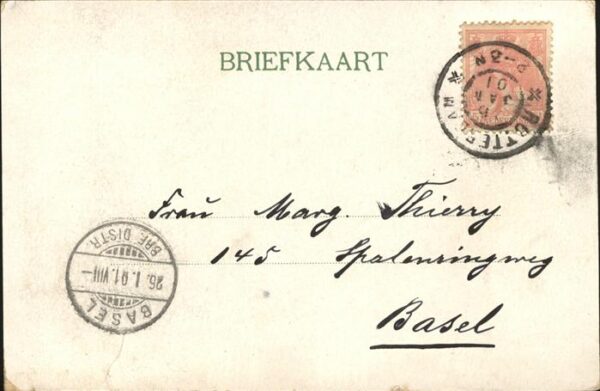 BRIEFKAART
ROTTERDAM
JAN
01
Frau Marg. Thierry
145 Spalenringweg
Basel
BASEL
26.I.01.VIII—
BRF. DISTR.